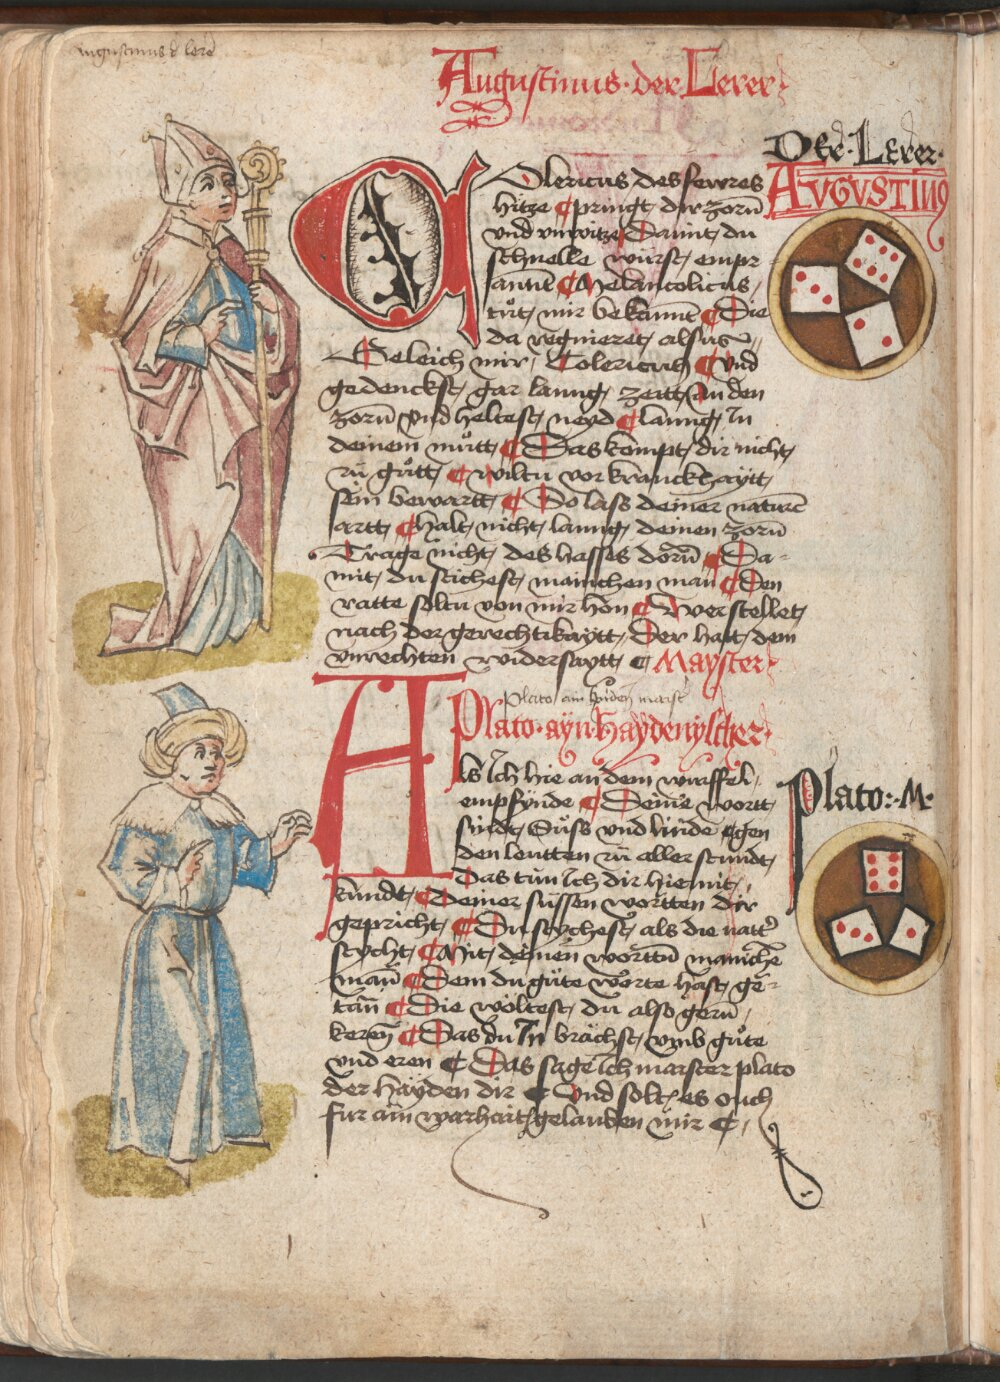 Augustinus der Lerer
Augustinus der Lerer
Der Lerer
AVGVSTIN9
Colericus des fewres
hitze pringt dir zorn
vnd vnwitze Damit du
schnelle würst empr
Melancolicus
tůt mir bekannt Die
da regnieret alsus
Geleich mir Colericus Vnd
gedenckst gar lanng zeitt An den
zorn Vnd heltest neyd lanng In
deinem můtt Das kompt dir nicht
zů gůtt wiltu vor kranckhaytt
sein bewartt So lass deiner naturn
artt Halt nicht lanng deinen zorn
Trage nicht des hasses dorn Da=
mit du stichest mainchen man Den
ratte soltu von mir hon Wer stellet
nach der gerechtikaytt Der hatt dem
vnrechten widersaytt Mayster
Plato ain haiden maist
Plato ayn Haydenyscher
Als Ich hie an dem wirffel
empfinde Deine wortt
sindt Süss vnd linde gen
den leutten zů aller stundt
Das tůn Ich dir hiemit
kundt Deiner süssen wortten dir
gepricht Du stychest als die natter
sticht Mit deinen wortten maniche
mann Dem du gůte worte hast ge=
tan Die wöltest du also gern
keren Das du In brächst vmb gůte
vnd eren Das sage Ich maister plato
der Hayden dir Vnd solt es ouch
fur ain warhait gelauben mir
Plato M